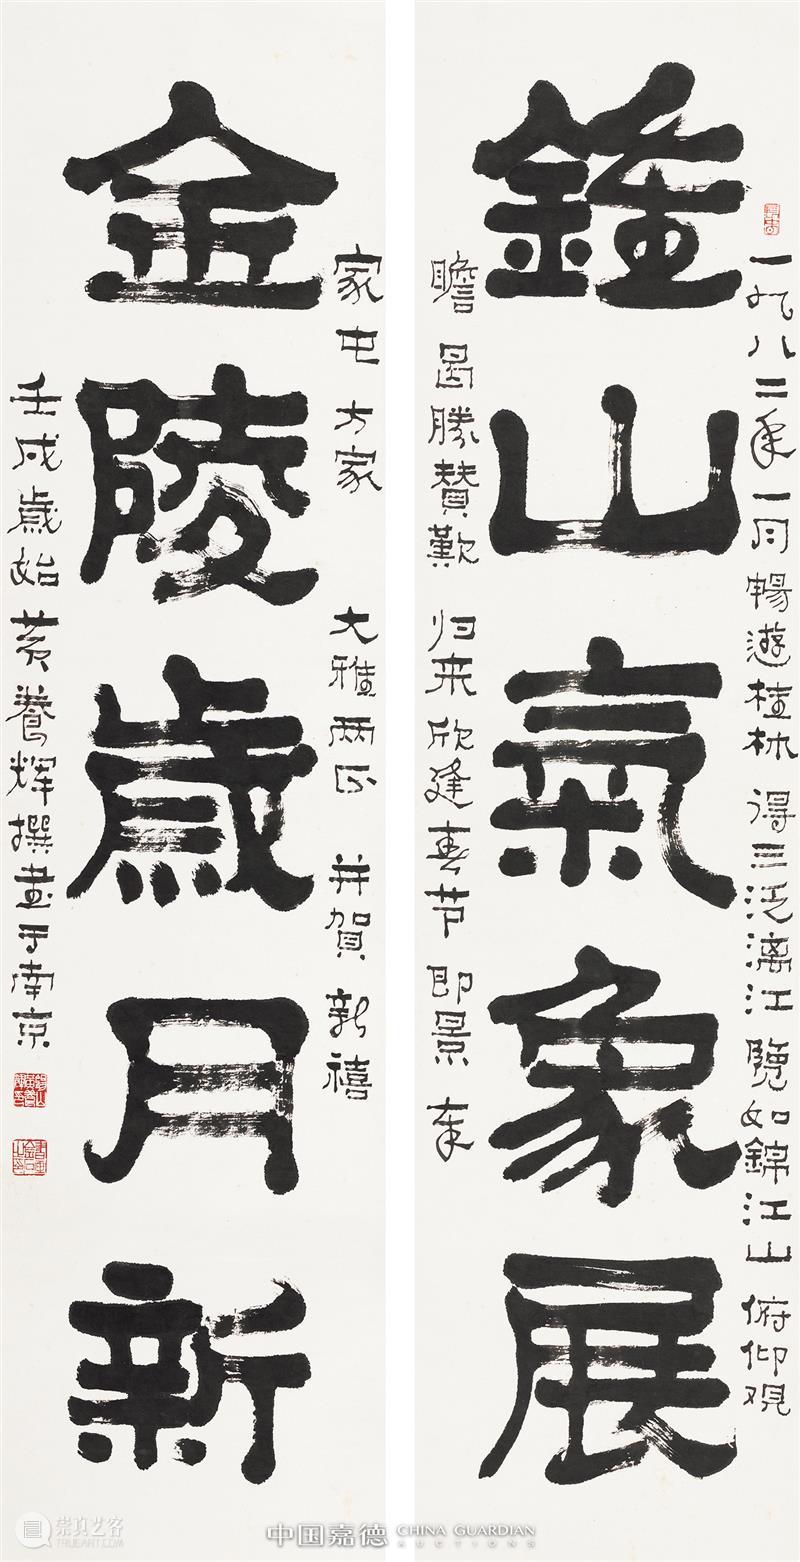 一九八二年一月暢遊桂林 得三泛漓江 覽如錦江山 俯仰观
鍾山氣象展
瞻 曷勝贊歎 归来欣逢春节 即景 奉
家屯 方家 大雅兩正 并賀 新禧
金陵歲月新
壬戌歲始 黄養輝撰書于南京
崇真艺客
TRUEART.COM
中国嘉德 CHINA GUARDIAN
AUCTIONS